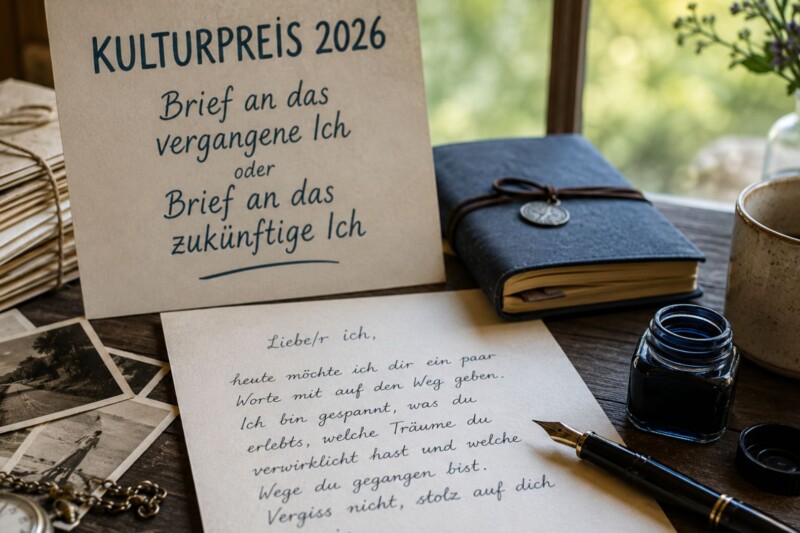 KULTURPREIS 2026
Brief an das
vergangene Ich
oder
Brief an das
zukünftige Ich
Liebe/r ich,
heute möchte ich dir ein paar
Worte mit auf den Weg geben.
Ich bin gespannt, was du
erlebts, welche Träume du
verwirklicht hast und welche
Wege du gegangen bist.
Vergiss nicht, stolz auf dich